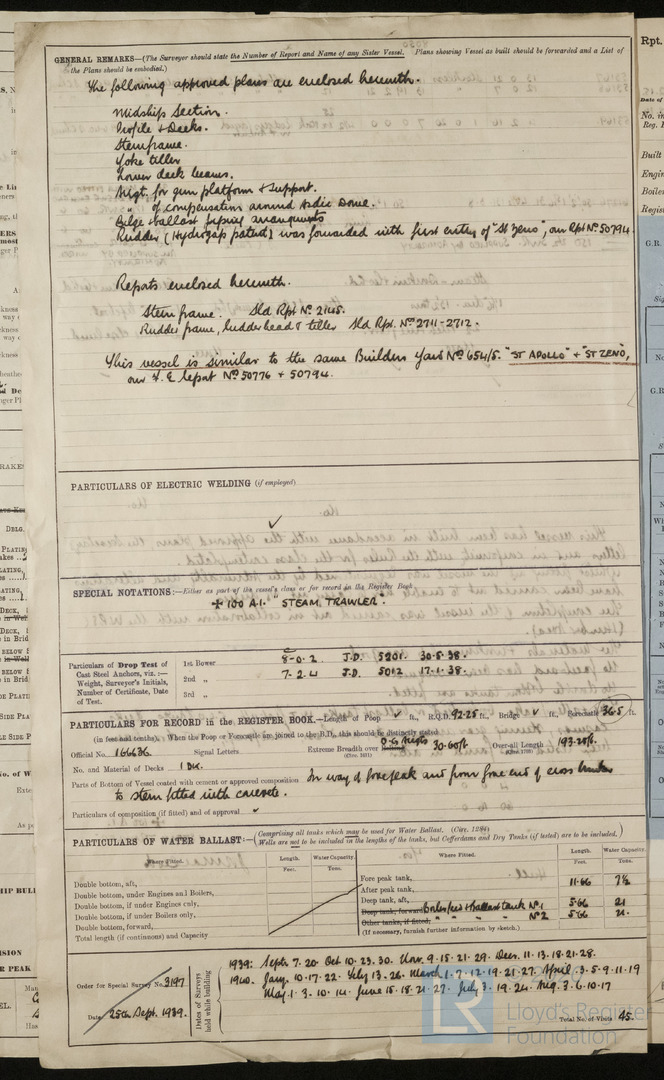 GENERAL REMARKS—(The Surveyor should state the Number of Report and Name of any Sister Vessel. Plans showing Vessel as built should be forwarded and a List of
the Plans should be embodied.)
The following approved plans are enclosed herewith.
Midship Section.
Profile & Decks.
Sternframe.
Yoke tiller
Lower deck beams.
Arrgt. for gun platform & support.
" of compensation around Asdic Dome.
Bilge & ballast piping arrangements
Rudder (Hydrogap patent) was forwarded with first entry of "St Zeno", our Rpt No. 50794.
Reports enclosed herewith.
Stern frame. Sld Rpt No. 2145.
Rudder frame, rudderhead & tiller Sld Rpt. No. 2711-2712.
This vessel is similar to the same Builders Yard No. 654/5. "ST APOLLO" & "ST ZENO",
our F.E. report No. 50776 & 50794.
PARTICULARS OF ELECTRIC WELDING (if employed)
SPECIAL NOTATIONS:—Either as part of the vessel's class or for record in the Register Book
+100 A.1. "STEAM TRAWLER".
Particulars of Drop Test of
Cast Steel Anchors, viz.:—
Weight, Surveyor's Initials,
Number of Certificate, Date
of Test.
1st Bower 8-0.2 J.D. 5201. 30.5.38.
2nd " 7.2.4 J.D. 5012 17.1.38.
3rd "
PARTICULARS FOR RECORD in the REGISTER BOOK.—Length of Poop ft., R.Q.D. 92.25 ft., Bridge ft., Forecastle 36.5 ft.
(in feet and tenths). When the Poop or Forecastle are joined to the B.D., this should be distinctly stated
Official No. 166636. Signal Letters Extreme Breadth over 30.60ft Over-all Length 193.20ft.
No. and Material of Decks 1 DK.
Parts of Bottom of Vessel coated with cement or approved composition In way of forepeak and from fore end of cross bunker
to stern fitted with concrete.
Particulars of composition (if fitted) and of approval
PARTICULARS OF WATER BALLAST:— (Comprising all tanks which may be used for Water Ballast. (Circ. 1284)
Wells are not to be included in the lengths of the tanks, but Cofferdams and Dry Tanks (if tested) are to be included.)
Where Fitted. Length. Feet. Water Capacity. Tons. Where Fitted. Length. Feet. Water Capacity. Tons.
Double bottom, aft,
Double bottom, under Engines and Boilers,
Double bottom, if under Engines only,
Double bottom, if under Boilers only,
Double bottom, forward,
Total length (if continuous) and Capacity
Fore peak tank, 11.66 7½
After peak tank,
Deep tank, aft,
Deep tank, forward Boiler feed & Ballast tank No 1 5.66 21
Other tanks, if fitted, " " " " No 2 5.66 21.
(If necessary, furnish further information by sketch.)
Order for Special Survey No. 3197
Date 25th Sept. 1939.
Dates of Surveys
held while building
1939: Sept. 7. 20. Oct 10. 23. 30. Nov. 9. 15. 21. 29. Dec. 11. 13. 18. 21. 28.
1940. Jany. 10. 17. 22. Feby 13. 26. March 1. 7. 12. 19. 21. 27. April 3. 5. 9. 11. 19
May. 1. 3. 10. 14. June 15. 18. 21. 27. July 3. 19. 24. Aug. 3. 6. 10. 17
Total No. of Visits 45.
LR
Lloyd's Register
Foundation